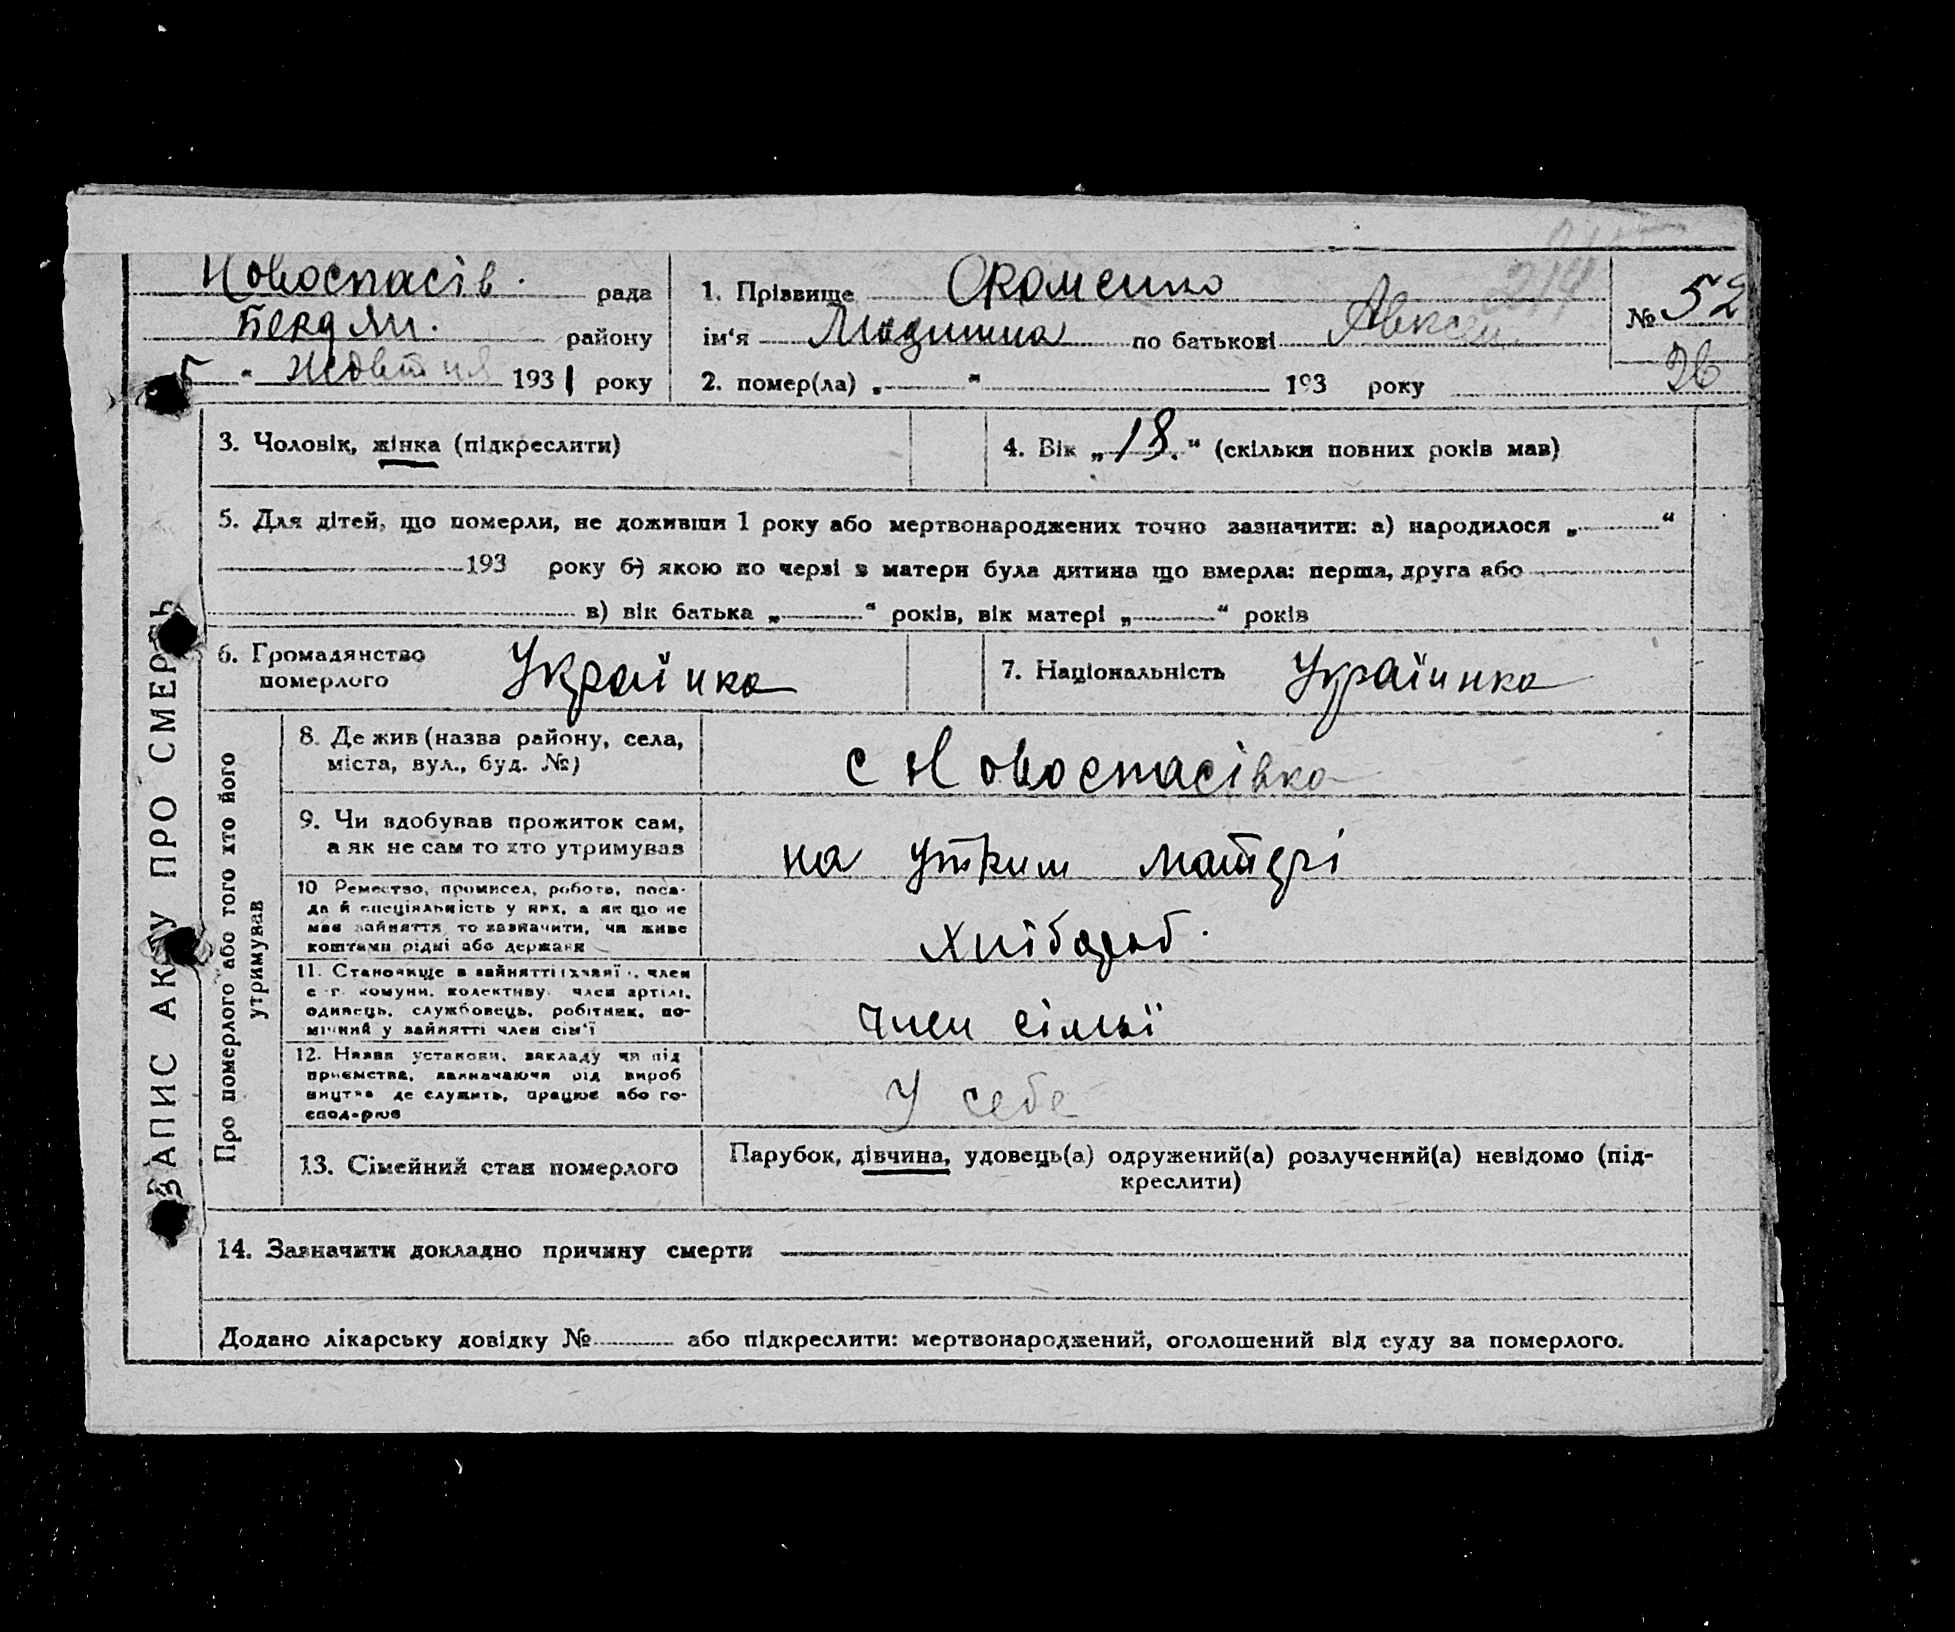 Новоспасів. рада
Бердян. району
5 " жовтня 1931 року
1. Прізвище
ім'я по батькові Авксен.
2. помер(ла) „ " 193 року
№ 52
26
214
ЗАПИС АКТУ ПРО СМЕРТЬ
3. Чоловік, жінка (підкреслити)
4. Вік „18." (скільки повних років мав)
5. Для дітей, що померли, не доживши 1 року або мертвонароджених точно зазначити: а) народилося „ "
193 року б) якою по черзі в матери була дитина що вмерла: перша, друга або
в) вік батька „ " років, вік матері „ " років
6. Громадянство
померлого
Українка
7. Національність Українка
Про померлого або того хто його
утримував
8. Де жив (назва району, села,
міста, вул., буд. №)
с Новоспасівка
9. Чи здобував прожиток сам,
а як не сам то хто утримував
на утрим матері
10 Ремество, промисел, робота, поса-
да й спеціяльність у них, а як що не
мав зайняття то зазначити, чи живе
коштами рідні або держави
хлібороб.
11. Становище в зайнятті член
с.-г. комуни, колективу, член артілі,
одинець, службовець, робітник, по-
мічний у зайнятті член сім'ї
член сімьї
12. Назва установи, закладу чи під
приємства, зазначаючи рід вироб
ництва де служить, працює або го-
спод-рює
У себе
13. Сімейний стан померлого
Парубок, дівчина, удовець(а) одружений(а) розлучений(а) невідомо (під-
креслити)
14. Зазначити докладно причину смерти
Додано лікарську довідку № або підкреслити: мертвонароджений, оголошений від суду за померлого.